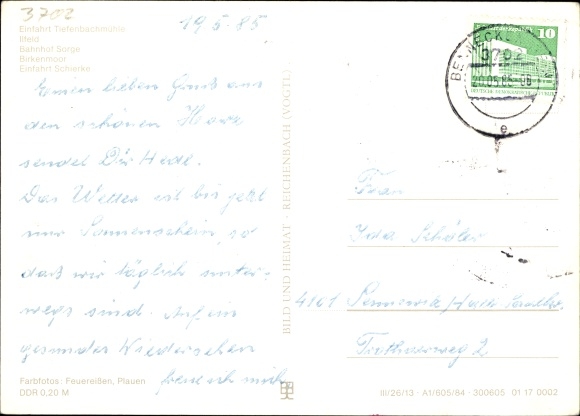 3702
19.5.85
Einfahrt Tiefenbachmühle
Ilfeld
Bahnhof Sorge
Birkenmoor
Einfahrt Schierke
Einen lieben Gruß aus
den schönen Harz
sendet Dir Hedl.
Das Wetter ist bis jetzt
nur Sonnenschein, so
daß wir täglich unter-
wegs sind. Auf ein
gesundes Wiedersehen
freue ich mich
Farbfotos: Feuereißen, Plauen
DDR 0,20 M
BILD UND HEIMAT · REICHENBACH (VOGTL)
10
BENNECKENSTEIN
3702
20.05.85
e
Frau
Ida Schäler
4101 Sennewitz/Halle Saalkr.
Trothaerweg 2
III/26/13 · A1/605/84 · 300605 01 17 0002